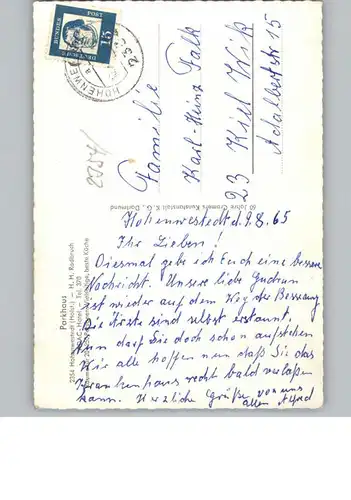 DEUTSCHE BUNDESPOST
15
HOHENWE
Familie
Karl-Heinz Falk
23 Kiel Wik
Adalbertstr 15
60 Jahre Cramers Kunstanstalt K. G., Dortmund
Parkhaus
2354 Hohenwestedt (Holst.) — H. H. Radbruch
Tel. 376
beste Küche
Hohenwestedt d. 9.8.65
Ihr Lieben!
Diesmal gebe ich Euch eine bessere
Nachricht. Unsere liebe Gudrun
ist wieder auf dem Weg der Besserung
Die Ärzte sind selbst erstaunt.
Nun darf Sie doch schon aufstehen
Wir alle hoffen nun daß Sie das
Krankenhaus recht bald verlaßen
kann. Herzliche Grüße von uns
allen